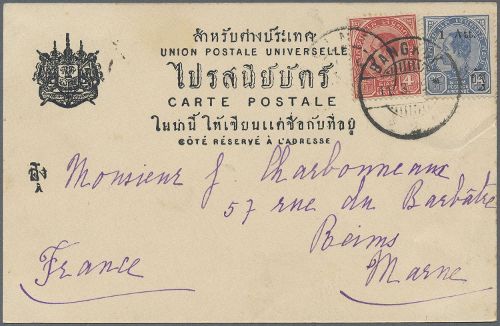 สำหรับต่างประเทศ
UNION POSTALE UNIVERSELLE
ไปรสนียบัตร์
CARTE POSTALE
ในน่านี้ ให้เขียนแต่ชื่อกับที่อยู่
CÔTÉ RÉSERVÉ À L'ADRESSE
ถึง
A
1 Att.
BANGKOK
4
Monsieur J Charbonneaux
57 rue du Barbâtre
Reims
France
Marne